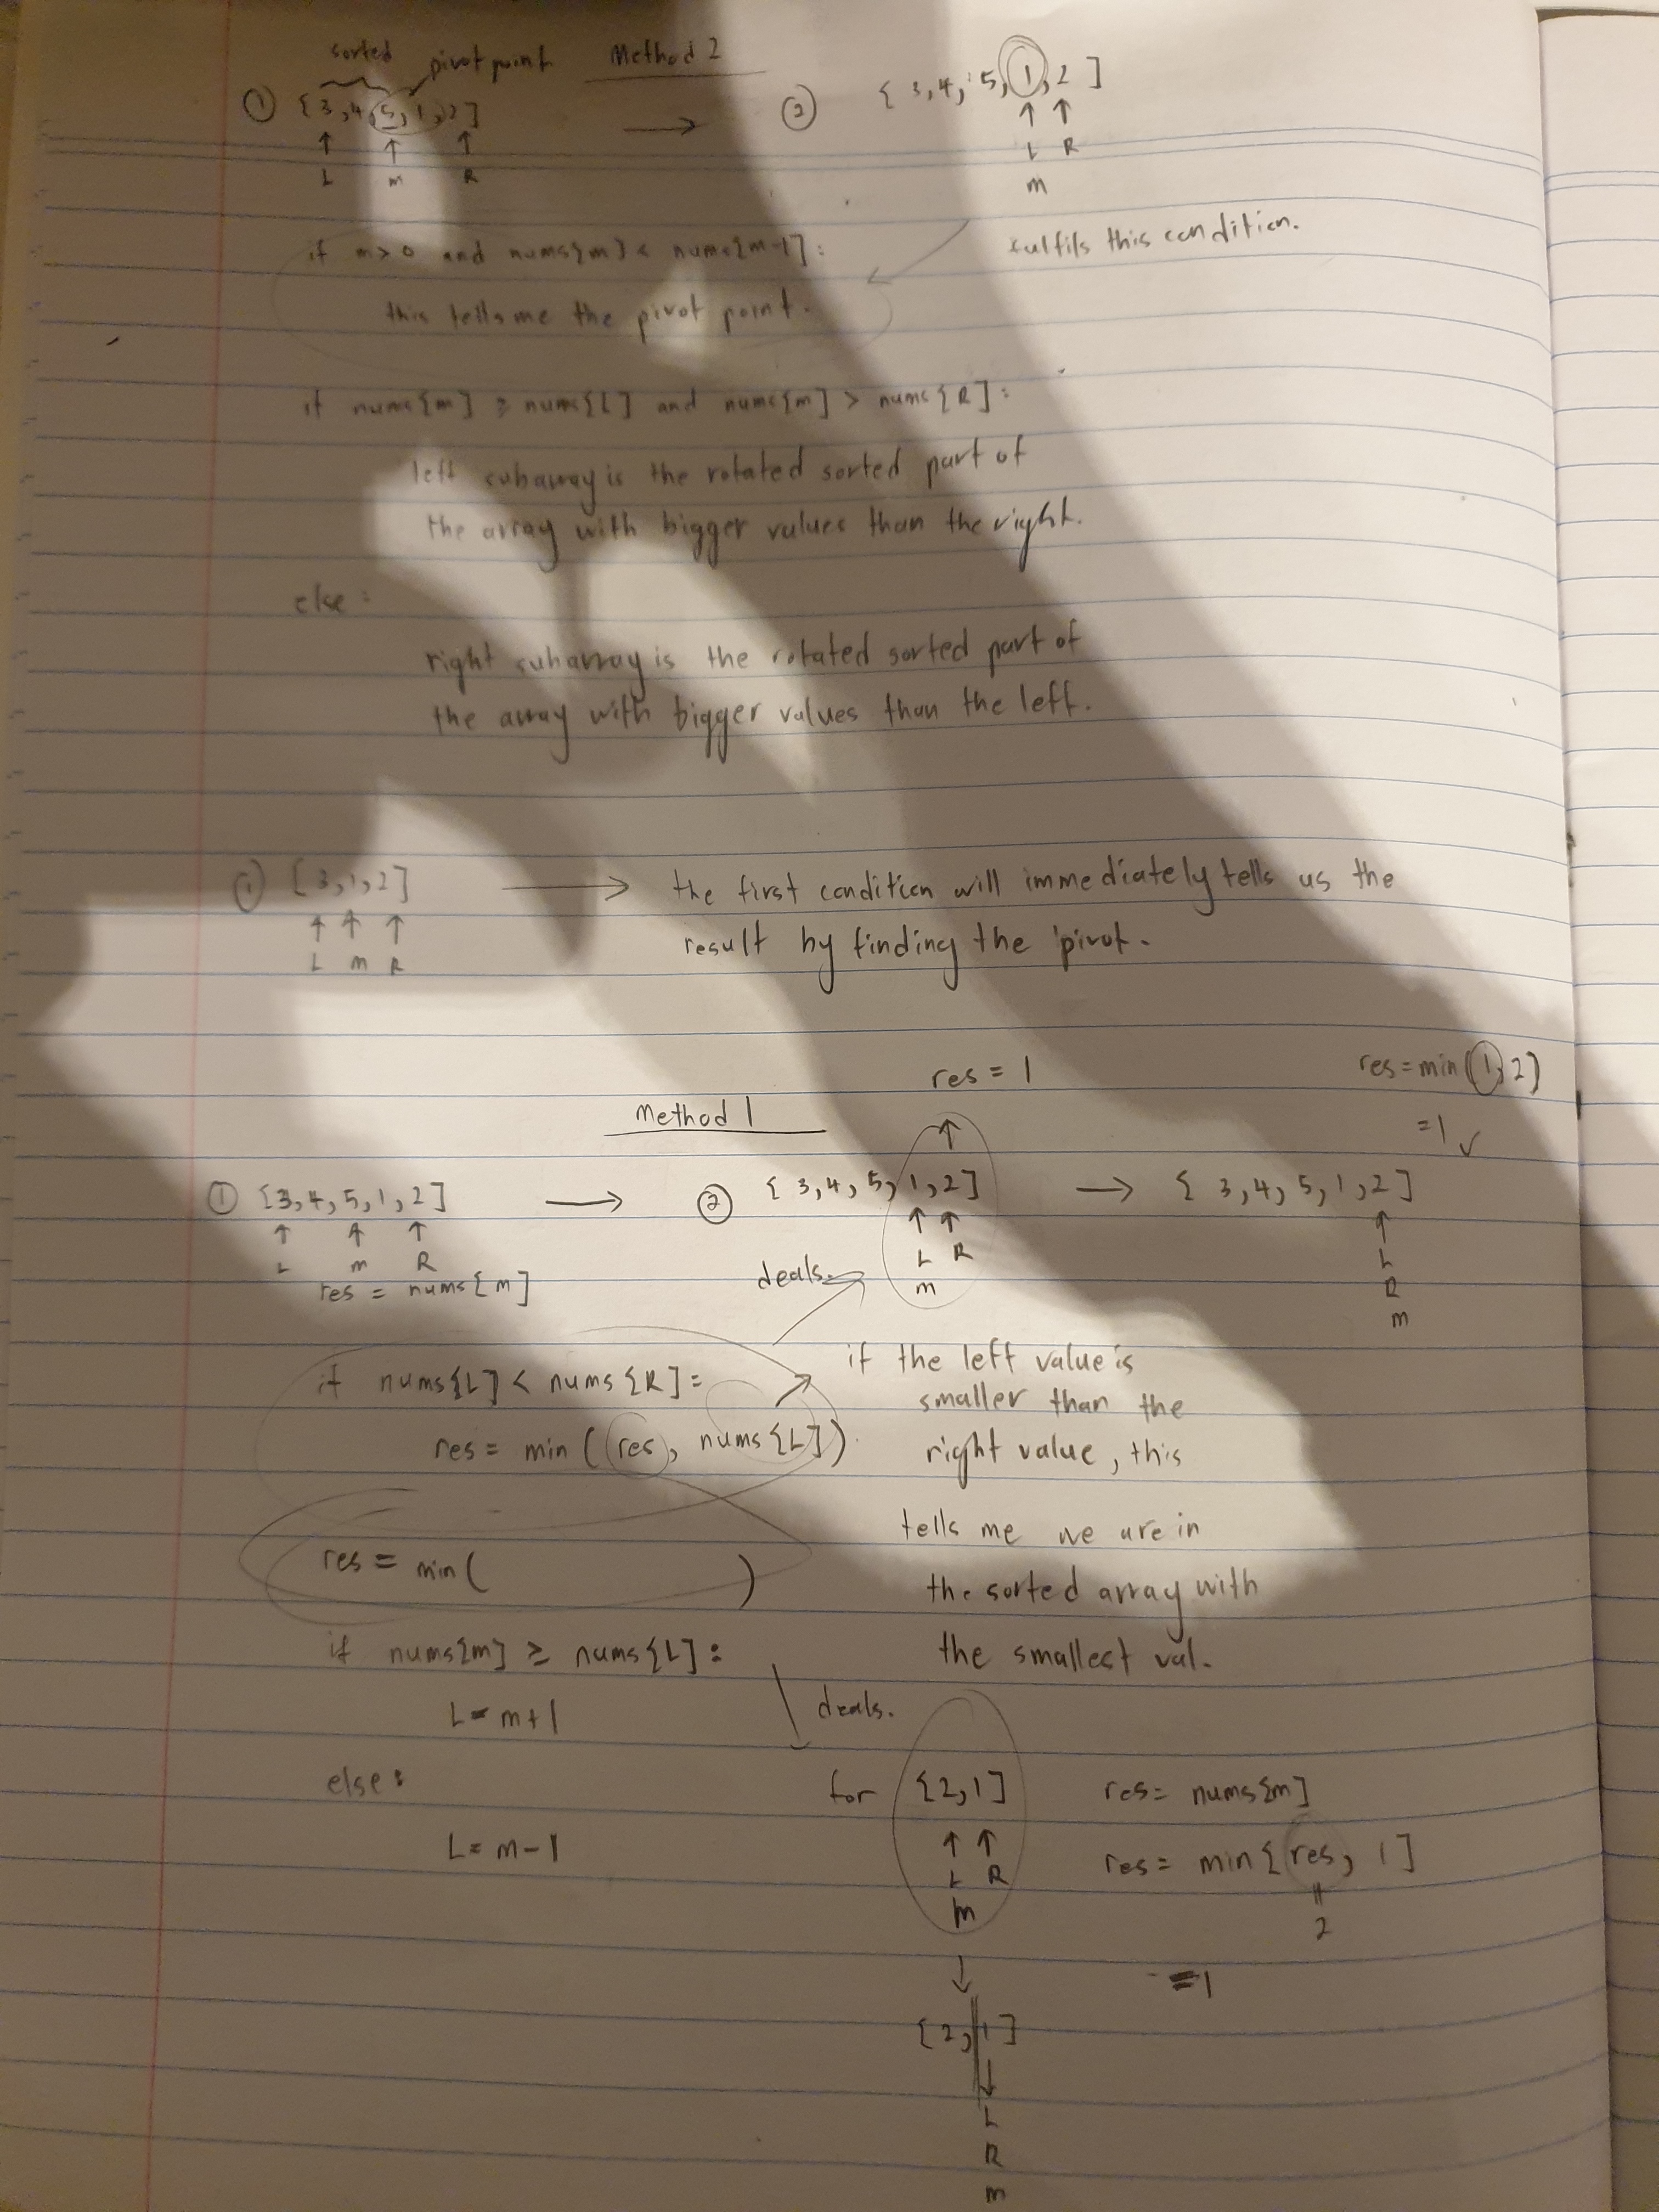 sorted pivot point Method 2
① [3,4,5,1,2] → ② [3,4,5,1,2]
↑ ↑ ↑ ↑ ↑
L m R L R
m
if m>0 and nums[m] < nums[m-1]: fulfils this condition.
this tells me the pivot point.
if nums[m] ≥ nums[L] and nums[m] > nums[R]:
left subarray is the rotated sorted part of
the array with bigger values than the right.
else:
right subarray is the rotated sorted part of
the array with bigger values than the left.
① [3,1,2] → the first condition will immediately tells us the
↑ ↑ ↑ result by finding the pivot.
L m R
res = 1 res = min(1,2)
Method 1 ↑ =1 ✓
① [3,4,5,1,2] → ② [3,4,5,1,2] → [3,4,5,1,2]
↑ ↑ ↑ ↑ ↑ ↑
L m R L R L
res = nums[m] deals. m R
m
if nums[L] < nums[R]:
res = min(res, nums[L])
if the left value is
smaller than the
right value, this
tells me we are in
the sorted array with
the smallest val.
res = min( )
if nums[m] ≥ nums[L]:
L = m+1
deals.
else:
L = m-1
for [2,1] res = nums[m]
↑ ↑ res = min[res, 1]
L R 
m 2
↓ =1
[2,1]
↓
L
R
m